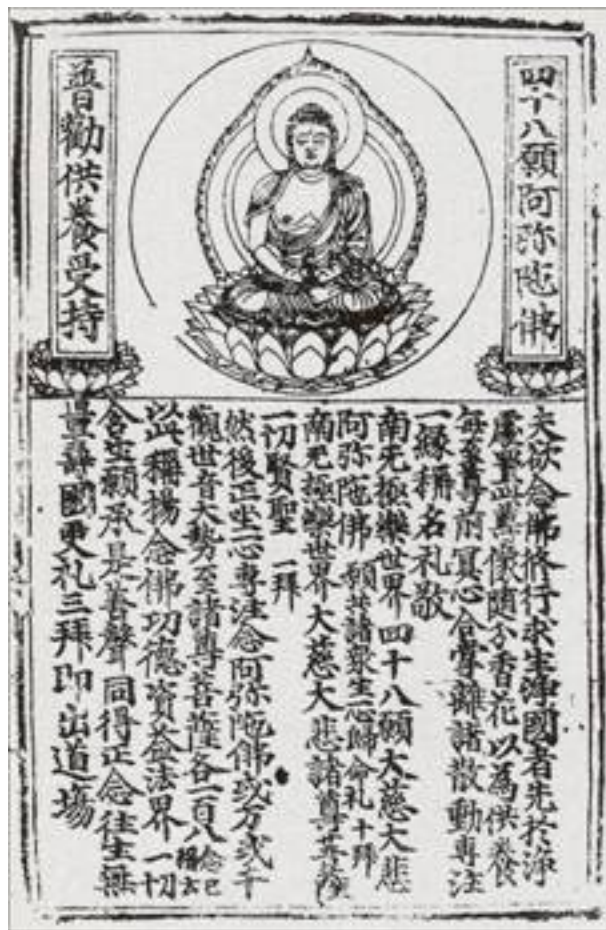 四十八願阿弥陁佛
普勸供養受持
夫欲念佛修行求生淨國者先於淨
處置此尊像隨分香花以為供養
每至尊前冥心合掌離諸散動專注
一緣稱名礼敬
南无極樂世界四十八願大慈大悲
阿弥陁佛 願共諸眾生一心歸命礼十拜
南无極樂世界大慈大悲諸尊菩薩
一切賢聖 一拜
然後正坐一心專注念阿弥陁佛或万或千
觀世音大勢至諸尊菩薩各一百八念已稱云
以此稱揚念佛功德資益法界一切
含生願承是善聲同得正念往生無
量壽國更礼三拜即出道場